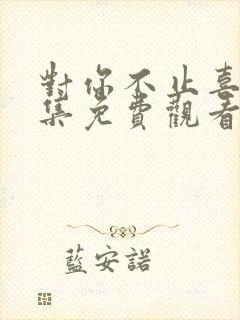 對你不止喜
集免費觀看
藍安諾